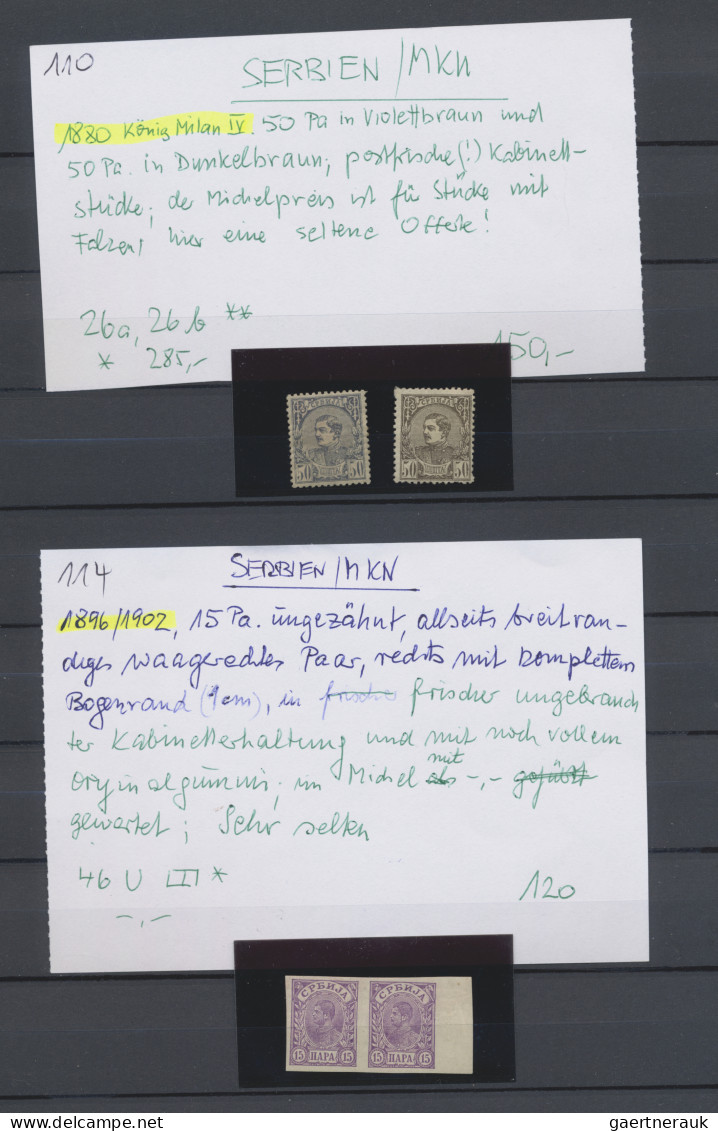 110
SERBIEN/MKN
1880 König Milan IV. 50 Pa in Violettbraun und
50 Pa. in Dunkelbraun, postfrische (!) Kabinett-
stücke; der Michelpreis ist für Stücke mit
Falzen, hier eine seltene Offerte!
26a, 26b **
* 285,-
150,-
СРБИЈА СРБИЈА
50 50 50 50
114
SERBIEN/MKN
1896/1902, 15 Pa. ungezähnt, allseits breitran-
diges waagerechtes Paar, rechts mit komplettem
Bogenrand (1cm), in frische frischer ungebrauch
ter Kabinetterhaltung und mit noch vollem
Originalgummi; in Michel als mit -,-
gewertet; Sehr selten
46 U *
-,-
120
СРБИЈА СРБИЈА
15 ПАРА 15 15 ПАРА 15
gaertnerauk